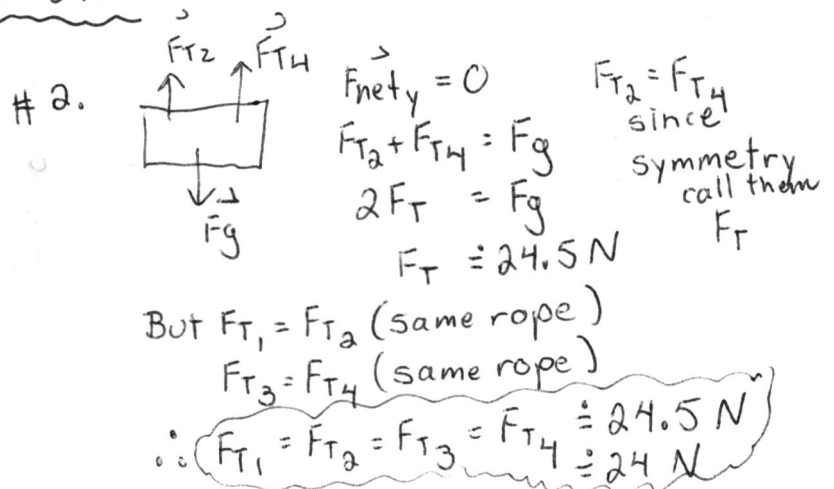 #2.
F⃗T2 F⃗T4
F⃗g
F⃗nety = 0
FT2 + FT4 = Fg
2FT = Fg
FT ≐ 24.5 N
FT2 = FT4
since
symmetry
call them
FT
But FT1 = FT2 (same rope)
FT3 = FT4 (same rope)
∴ FT1 = FT2 = FT3 = FT4 ≐ 24.5 N
≐ 24 N